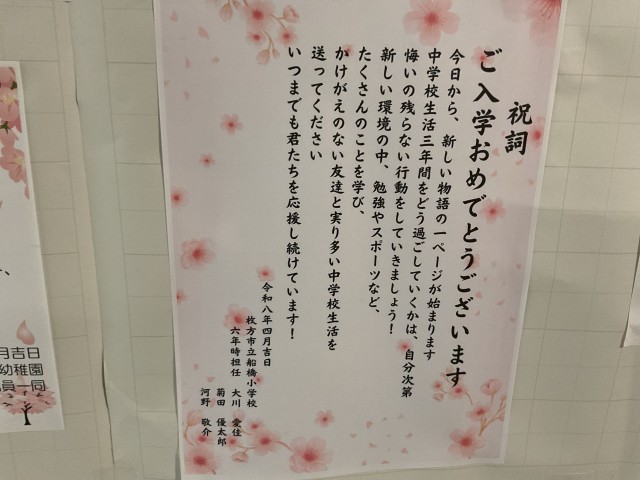 祝詞
ご入学おめでとうございます
今日から、新しい物語の一ページが始まります
中学校生活三年間をどう過ごしていくかは、自分次第
悔いの残らない行動をしていきましょう!
新しい環境の中、勉強やスポーツなど、
たくさんのことを学び、
かけがえのない友達と実り多い中学校生活を
送ってください
いつまでも君たちを応援し続けています!
令和八年四月吉日
枚方市立船橋小学校
六年時担任 大川 愛佳
菊田 優太郎
河野 敬介
月吉日
幼稚園
員一同